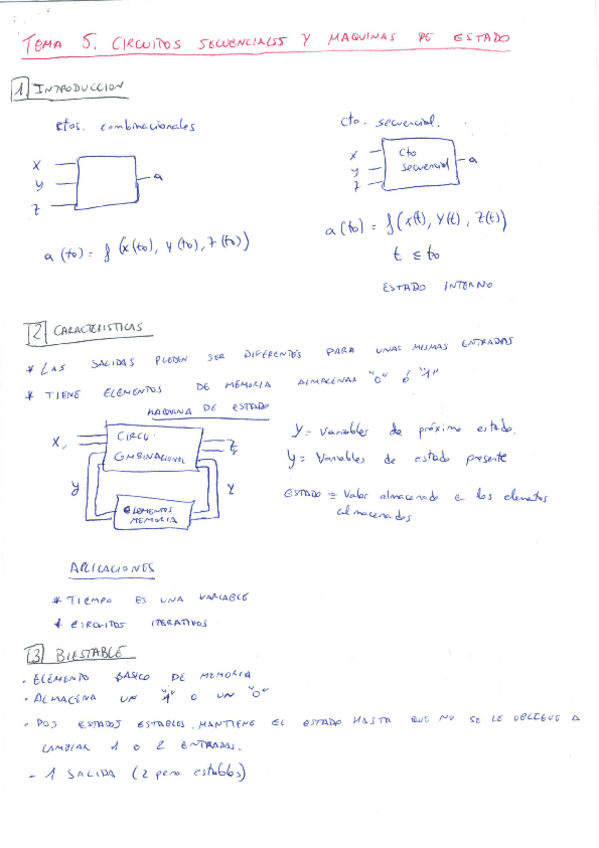 TEMA 5. CIRCUITOS SECUENCIALES Y MAQUINAS DE ESTADO
1 INTRODUCCION
ctos. combinacionales
x
y
z
a
a(to) = f(x(to), y(to), z(to))
cto. secuencial.
x
y
z
cto
secuencial
a
a(to) = f(x(t), y(t), z(t))
t ≤ to
ESTADO INTERNO
2 CARACTERISTICAS
* LAS SALIDAS PUEDEN SER DIFERENTES PARA UNAS MISMAS ENTRADAS
* TIENE ELEMENTOS DE MEMORIA ALMACENAR "0" ó "1"
MAQUINA DE ESTADO
X,
CIRCU.
COMBINACIONAL
Z
y
Y
ELEMENTOS
MEMORIA
Y = Variables de próximo estado.
y = Variables de estado presente
ESTADO = Valor almacenado e los elementos
almacenados
APLICACIONES
* TIEMPO ES UNA VARIABLE
* CIRCUITOS ITERATIVOS
3 BIESTABLE
- ELEMENTO BASICO DE MEMORIA
- ALMACENA UN "1" O UN "0"
- DOS ESTADOS ESTABLES. MANTIENE EL ESTADO HASTA QUE NO SE LE OBLIGUE A
CAMBIAR 1 O 2 ENTRADAS.
- 1 SALIDA (2 pero estables)